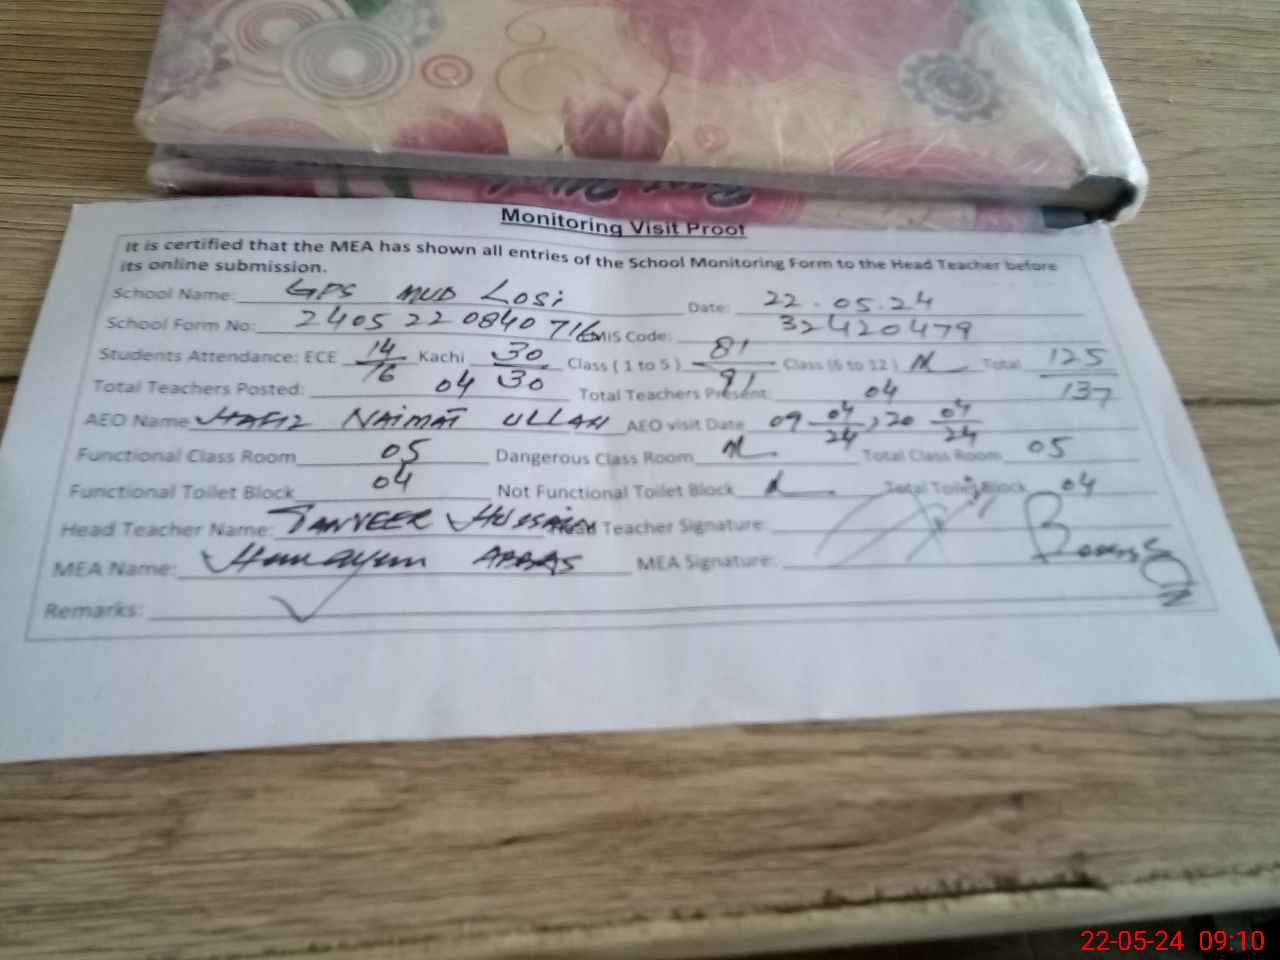 Monitoring Visit Proof
It is certified that the MEA has shown all entries of the School Monitoring Form to the Head Teacher before
its online submission.
School Name: GPS MUD LOSi Date: 22.05.24
School Form No: 2405220840716 EMIS Code: 32420479
Students Attendance: ECE 14/16 Kachi 30/30 Class ( 1 to 5 ) 81/91 Class (6 to 12 ) N Total 125/137
Total Teachers Posted: 04 Total Teachers Present: 04
AEO Name HAFIZ NAIMAT ULLAH AEO visit Date 09 04/24, 20 04/24
Functional Class Room 05 Dangerous Class Room N Total Class Room 05
Functional Toilet Block 04 Not Functional Toilet Block Total Toilet Block 04
Head Teacher Name: TANVEER HUSSAIN Head Teacher Signature:
MEA Name: Humayun ABBAS MEA Signature:
Remarks:
22-05-24 09:10